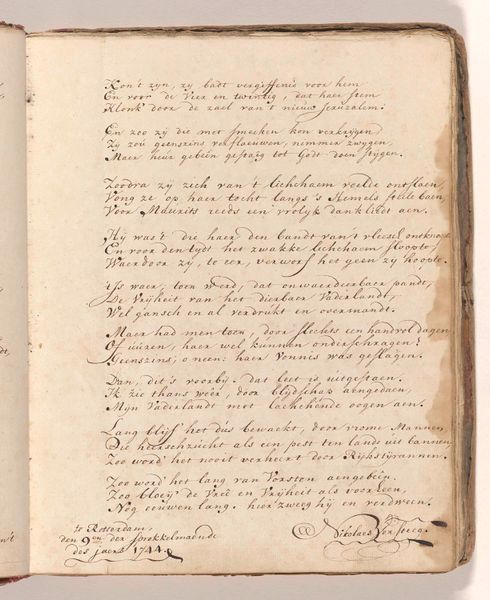 Kon't zyn, zy badt vergiffenis voor hem
En voor de Vier en twintig, dat haer stem
Klonk door de zael van't nieuw Jeruzalem.
En zoo zy die met smeeken kon verkrygen
Zy zou geenszins verflaeuwen, nemmer zwygen,
Maer heur gebeên gestaeg tot Godt doen stygen.
Zoodra zy zich van 't lichchaem voelde ontslaen,
Vong ze op haer tocht langs 's Hemels steile baen,
Voor Maurits reeds een vrolyk dankliedt aen.
Hy was't die haer den bandt van't vleesch ontknoopte
En voor den tydt het zwakke lichchaem sloopte,
Waerdoor zy, te eer, verworf het geen zy hoopte.
'tIs waer, toen werd, dat onwaerdeerbaer pandt,
De Vryheit van het dierbaer Vaderlandt,
Wel gansch en al verdrukt en overmandt.
Maer had men toen, door slechts een handvol dagen
Of uuren, haer wel kunnen onderschragen?
Geenszins; o neen: haer Vonnis was geslagen.
Dan, dit's voorbij. dat leet is uitgestaen.
Ik zie thans weêr, door blydschap aengedaen,
Myn Vaderlandt met lachchende oogen aen.
Lang blyf' het dus bewaekt, door vrome Mannen,
Die heerschzucht als een pest ten lands uit bannen
Zoo word' het nooit verheert door Rijkstyrannen.
Zoo word' het lang van Vorsten aengebeên.
Zoo bloey' de Vreê en Vryheit als voorheen,
Nog eeuwen lang. hier zweeg hy en verdween.
te Rotterdam,
den 9en der Sprokkelmaende
des jaers 1744.
Nikolaes Versteeg.